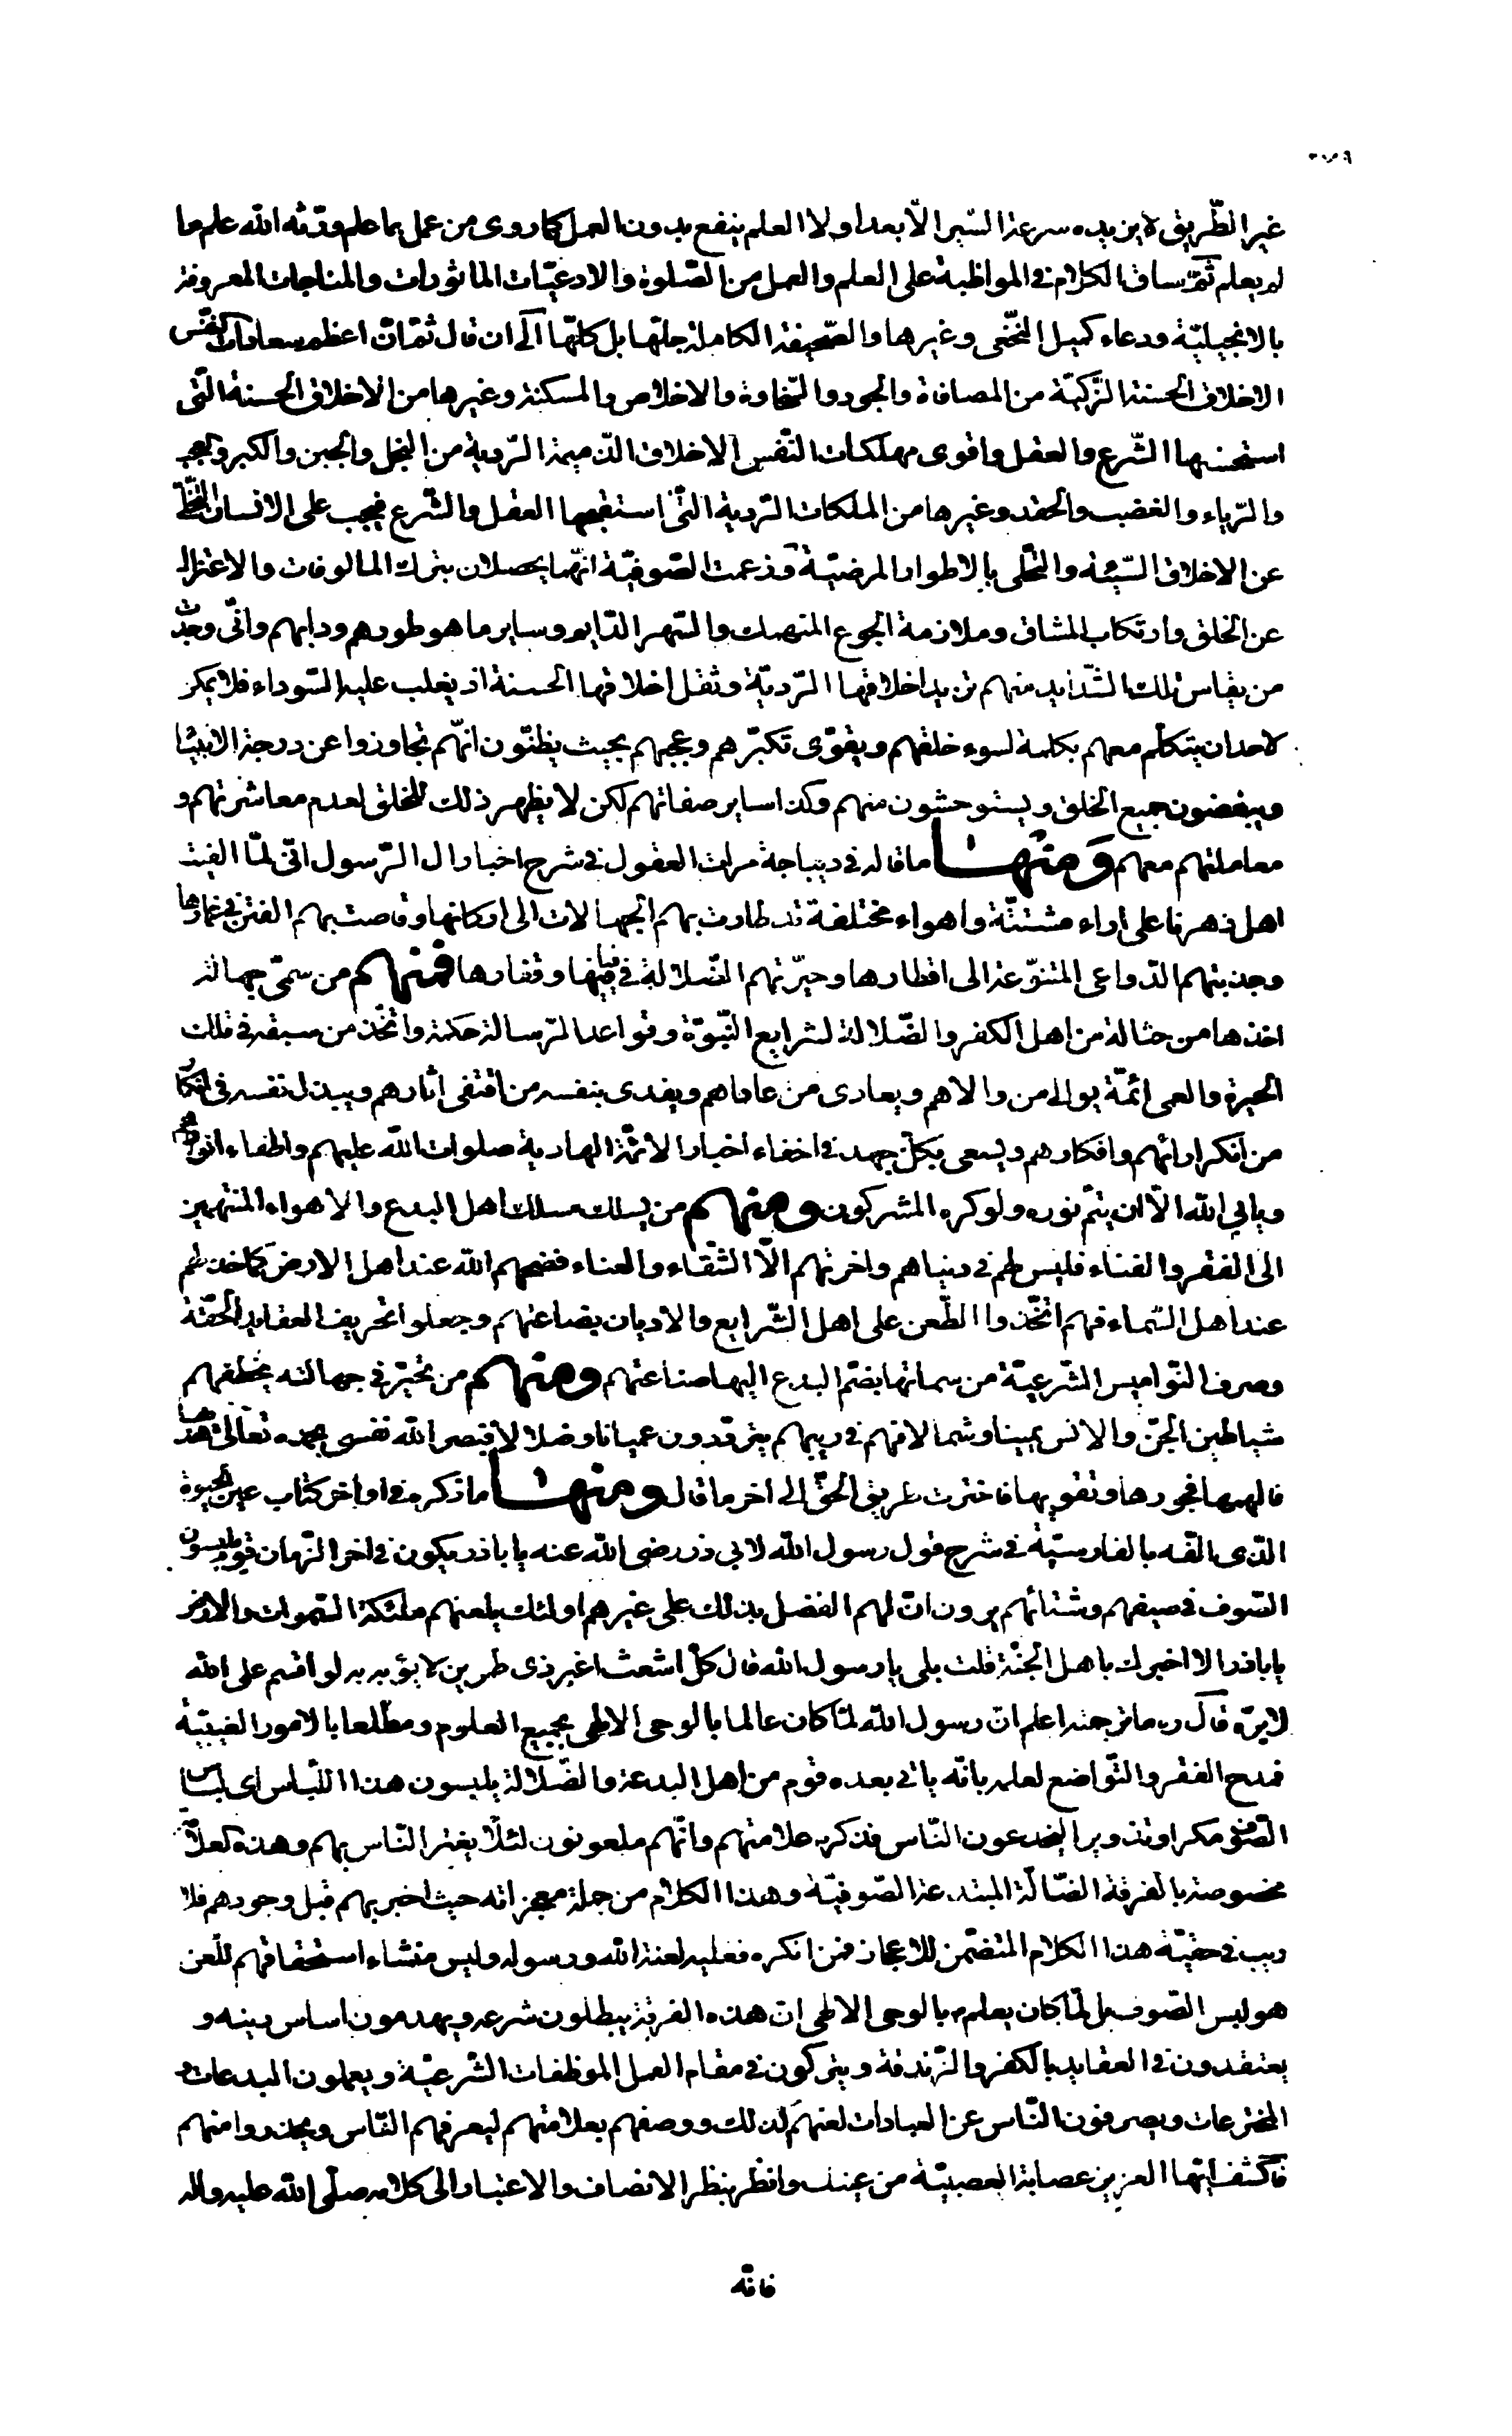 غير الطّريق لا يزيده سرعة السّير الّا بعدا ولا العلم ينفع بدون العمل كما روى من عمل بما علم ورّثه الله علم ما
لم يعلم ثمّ ساق الكلام فى المواظبة على العلم والعمل من الصّلوة والادعيّات الماثورات والمناجات المعروفة
بالانجيليّة ودعاء كميل النّخعى وغيرها والصّحيفة الكاملة جلّها بل كلّها الى ان قال ثمّ انّ اعظم سعادات النّفس
الاخلاق الحسنة الزّكيّة من المصافاة والجود والسّخاوة والاخلاص والمسكنة وغيرها من الاخلاق الحسنة الّتى
استحسنها الشّرع والعقل واقوى مهلكات النّفس الاخلاق الذّميمة الرّدية من البخل والجبن والكبر والعجب
والرّياء والغضب والحقد وغيرها من الملكات الرّدية الّتى استقبحها العقل والشّرع فيجب على الانسان التّخلّى
عن الاخلاق السّيّئة والتّحلّى بالاطوار المرضيّة وزعمت الصّوفيّة انّهما يحصلان بترك المالوفات والاعتزال
عن الخلق وارتكاب المشاق وملازمة الجوع المنهك والسّهر الدّايم وساير ما هو طورهم ودابهم وانّى وجدت
من يقاسى تلك الشّدايد منهم تزيد اخلاقها الرّديّة وتقل اخلاقها الحسنة اذ يغلب عليه السّوداء فلا يمكن
لاحد ان يتكلّم معهم بكلمة لسوء خلقهم ويقوّى تكبّرهم وعجبهم بحيث يظنّون انّهم تجاوزوا عن درجة الانبيا
ويبغضون جميع الخلق ويستوحشون منهم وكذا ساير صفاتهم لكن لا يظهر ذلك للخلق لعدم معاشرتهم و
معاملتهم معهم ومنها ما قاله فى ديباجة مرات العقول فى شرح اخبار ال الرّسول انّى لمّا الفيت
اهل دهرنا على اراء متشتتّة واهواء مختلفة قد طارت بهم الجهالات الى اوكانها وغاصت بهم الفتن فى غمارها
وجذبتهم الدّواعى المتنوّعة الى اقطارها وحيّرتهم الضّلالة فى فيافيها وقفارها فمنهم من سمّى جهالة
اخذها من حثالة من اهل الكفر والضّلالة لشرايع النّبوّة وقواعد الرّسالة حكمة واتّخذ من سبقه فى تلك
الحيرة والعمى ائمّة يوالى من والاهم ويعادى من عاداهم ويفدى بنفسه من اقتفى اثارهم ويبذل نفسه فى انكار
من انكر ارائهم وافكارهم ويسعى بكلّ جهد فى اخفاء اخبار الائمّة الهادية صلوات الله عليهم واطفاء انوارهم
ويابى الله الّا ان يتمّ نوره ولو كره المشركون ومنهم من يسلك مسلك اهل البدع والاهواء المنتهين
الى الفقر والفناء فليس لهم فى دنياهم واخرتهم الّا الشّقاء والعناء فضحهم الله عند اهل الارض كما خذلهم
عند اهل السّماء فهم اتّخذوا الطّعن على اهل الشّرايع والاديان بضاعتهم وجعلوا تحريف العقايد الحقّة
وصرف النّواميس الشّرعيّة من سماتها بضمّ البدع اليها صناعتهم ومنهم من تحيّر فى جهالته يخطفهم
شياطين الجنّ والانس يمينا وشمالا فهم فى ريبهم يتردّدون عميانا وضلالا فبصر الله نفسى بحمده تعالى هداها
فالهمها فجورها وتقويها فاخترت طريق الحقّ الى اخر ما قال ومنها ما ذكره فى اواخر كتاب عين الحيوة
الّذى الّفه بالفارسيّة فى شرح قول رسول الله لابى ذر رضى الله عنه يا باذر يكون فى اخر الزّمان قوم يلبسون
الصّوف فى صيفهم وشتائهم يرون انّ لهم الفضل بذلك على غيرهم اولئك يلعنهم ملئكة السّموات والارض
يا باذر الا اخبرك باهل الجنّة قلت بلى يا رسول الله قال كلّ اشعث اغبر ذى طمرين لا يؤبه به لو اقسم على الله
لابرّه قال ره ما ترجمته اعلم انّ رسول الله لمّا كان عالما بالوحى الالهى بجميع العلوم ومطّلعا بالامور الغيبيّة
فمدح الفقر والتّواضع لعلمه بانّه ياتى بعده قوم من اهل البدعة والضّلالة يلبسون هذا اللّباس اى لباس
الصّوف مكرا وتذويرا ليخدعون النّاس فذكر ره علامتهم وانّهم ملعونون لئلّا يغتر النّاس بهم وهذه العلامة
مخصوصة بالفرقة الضّالّة المبتدعة الصّوفيّة وهذا الكلام من جملة معجزاته حيث اخبر بهم قبل وجودهم فلا
ريب فى حقيّة هذا الكلام المتضمّن للاعجاز فمن انكره فعليه لعنة الله ورسوله وليس منشاء استحقاقهم للّعن
هو لبس الصّوف بل لمّا كان يعلم ره بالوحى الالهى انّ هذه الفرقة يبطلون شرعه ويهدمون اساس دينه و
يعتقدون فى العقايد بالكفر والزّندقة ويتركون فى مقام العمل الموظفات الشّرعيّة ويعملون البدعات و
المخترعات ويصرفون النّاس عن العبادات لعنهم لذلك ووصفهم بعلامتهم ليعرفهم النّاس ويحذروا منهم
فاكشف ايّها العزيز عصابة العصبيّة من عينك وانظر بنظر الانصاف والاعتبار الى كلامه صلّى الله عليه واله
فانّه